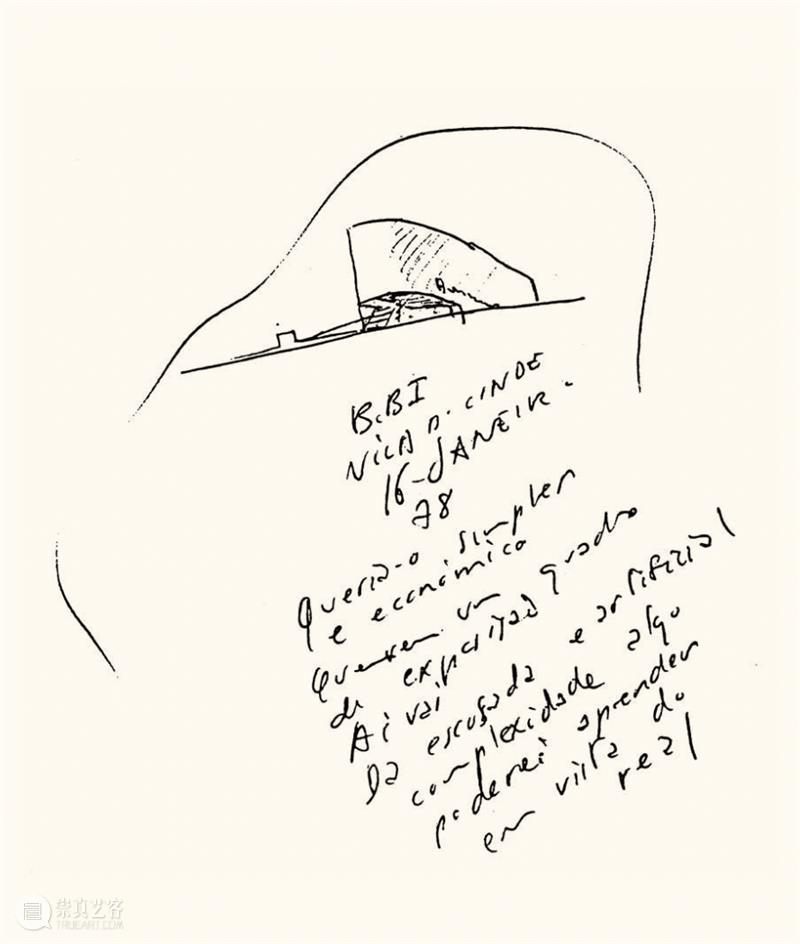 B.BI
VILA D. CONDE
16-JANEIR.
78
Queria-o simples
e económico
Querem um quadro
de exposição
Aí vai
Da escusada e artificial
complexidade algo
poderei aprender
em vista do
real
崇真艺客
TRUEART.COM